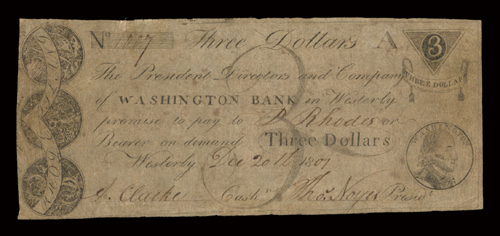 No Three Dollars A
3
THREE DOLLARS
The President Directors and Company
of WASHINGTON BANK in Westerly
promise to pay to P. Rhodes or
Bearer on demand Three Dollars
WASHINGTON
Westerly Dec 20th 1801
A. Clarke Cash Thos. Noyes Presidt